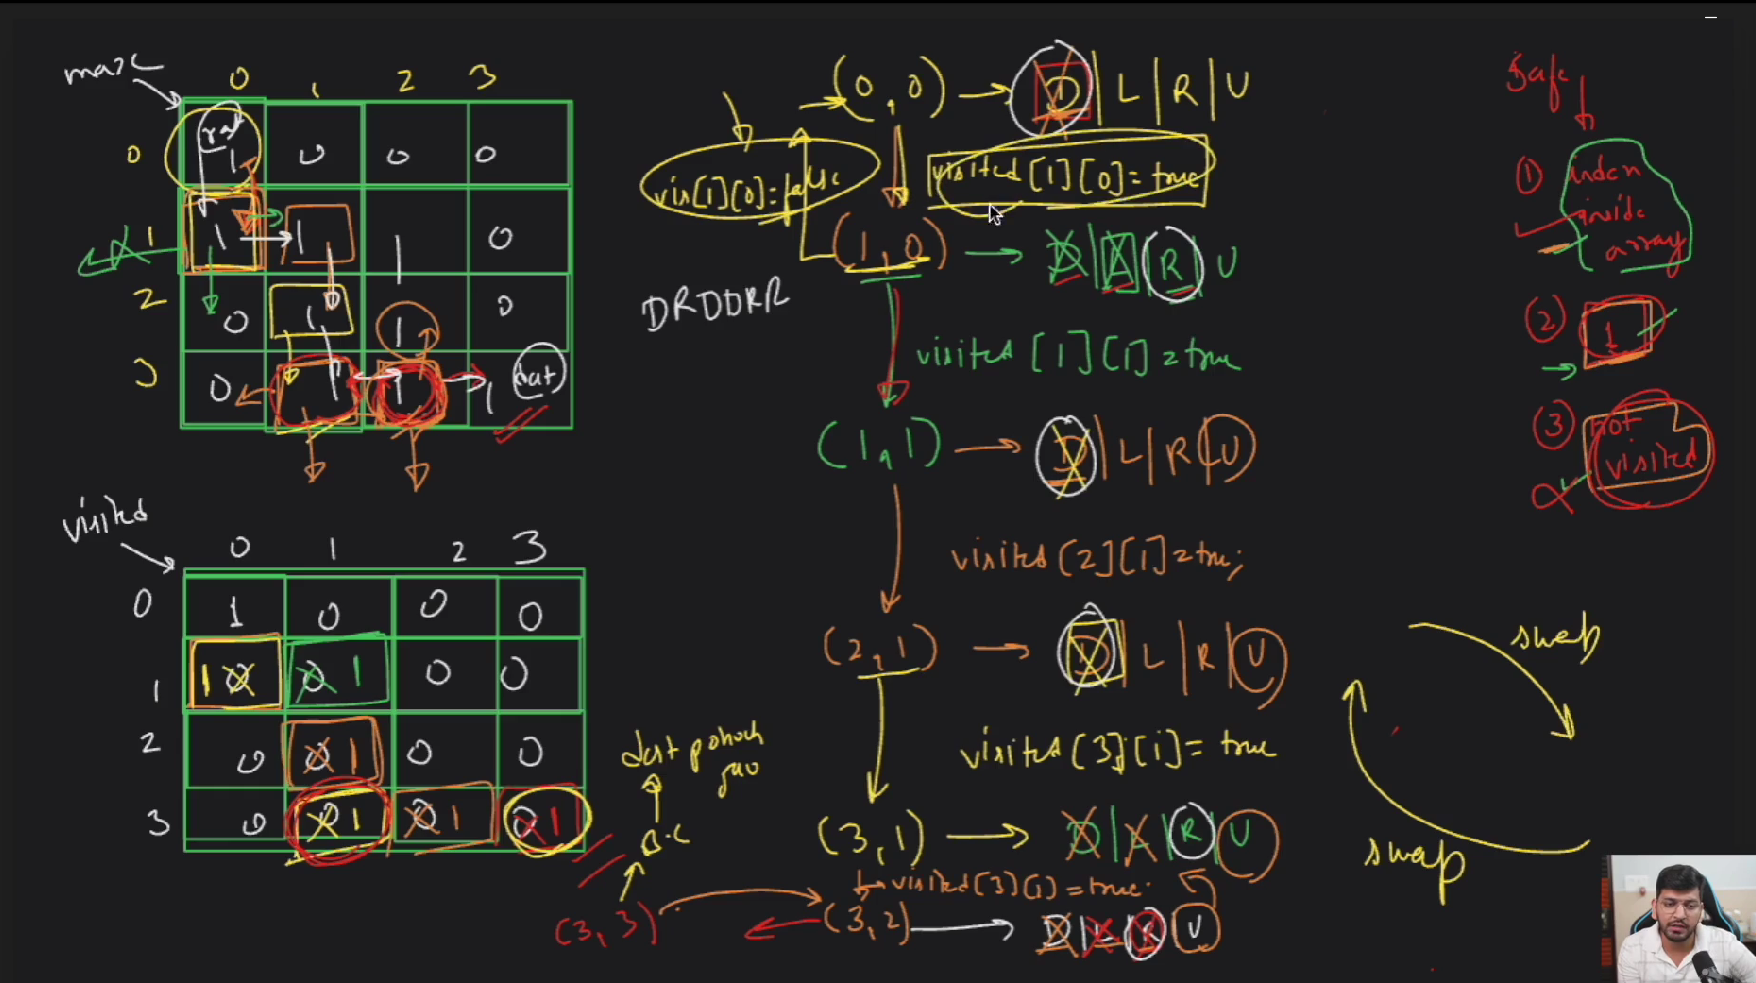 maze
0 1 2 3
0 rat 1 0 0 0
1 1 1 1 0
2 0 1 1 0
3 0 1 1 1
visited
0 1 2 3
0 1 0 0 0
1 1 0 0 1 0 0
2 0 0 1 0 0
3 0 0 1 0 1 0 1
(0,0) → D | L | R | U
vis[1][0]=false
visited [1][0]=true
(1,0) → D | L | R | U
DRDDRR
visited [1][1]=true
(1,1) → D | L | R | U
visited [2][1]=true;
(2,1) → D | L | R | U
visited [3][1]= true
(3,1) → D | L | R | U
visited [3][1]=true;
(3,2) → D | L | R | U
(3,3)
B.C
pohoch
jao
Safe
① index
inside
array
② 1
③ not
visited
swap
swap